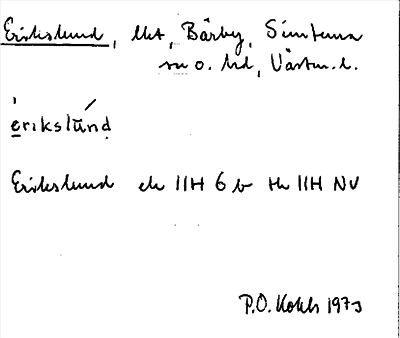 Erikslund, lht, Bärby, Simtuna
sn o. hd, Västm. l.
erikslund
Erikslund ek 11H 6 b th 11H NV
P.O. Kohls 1973